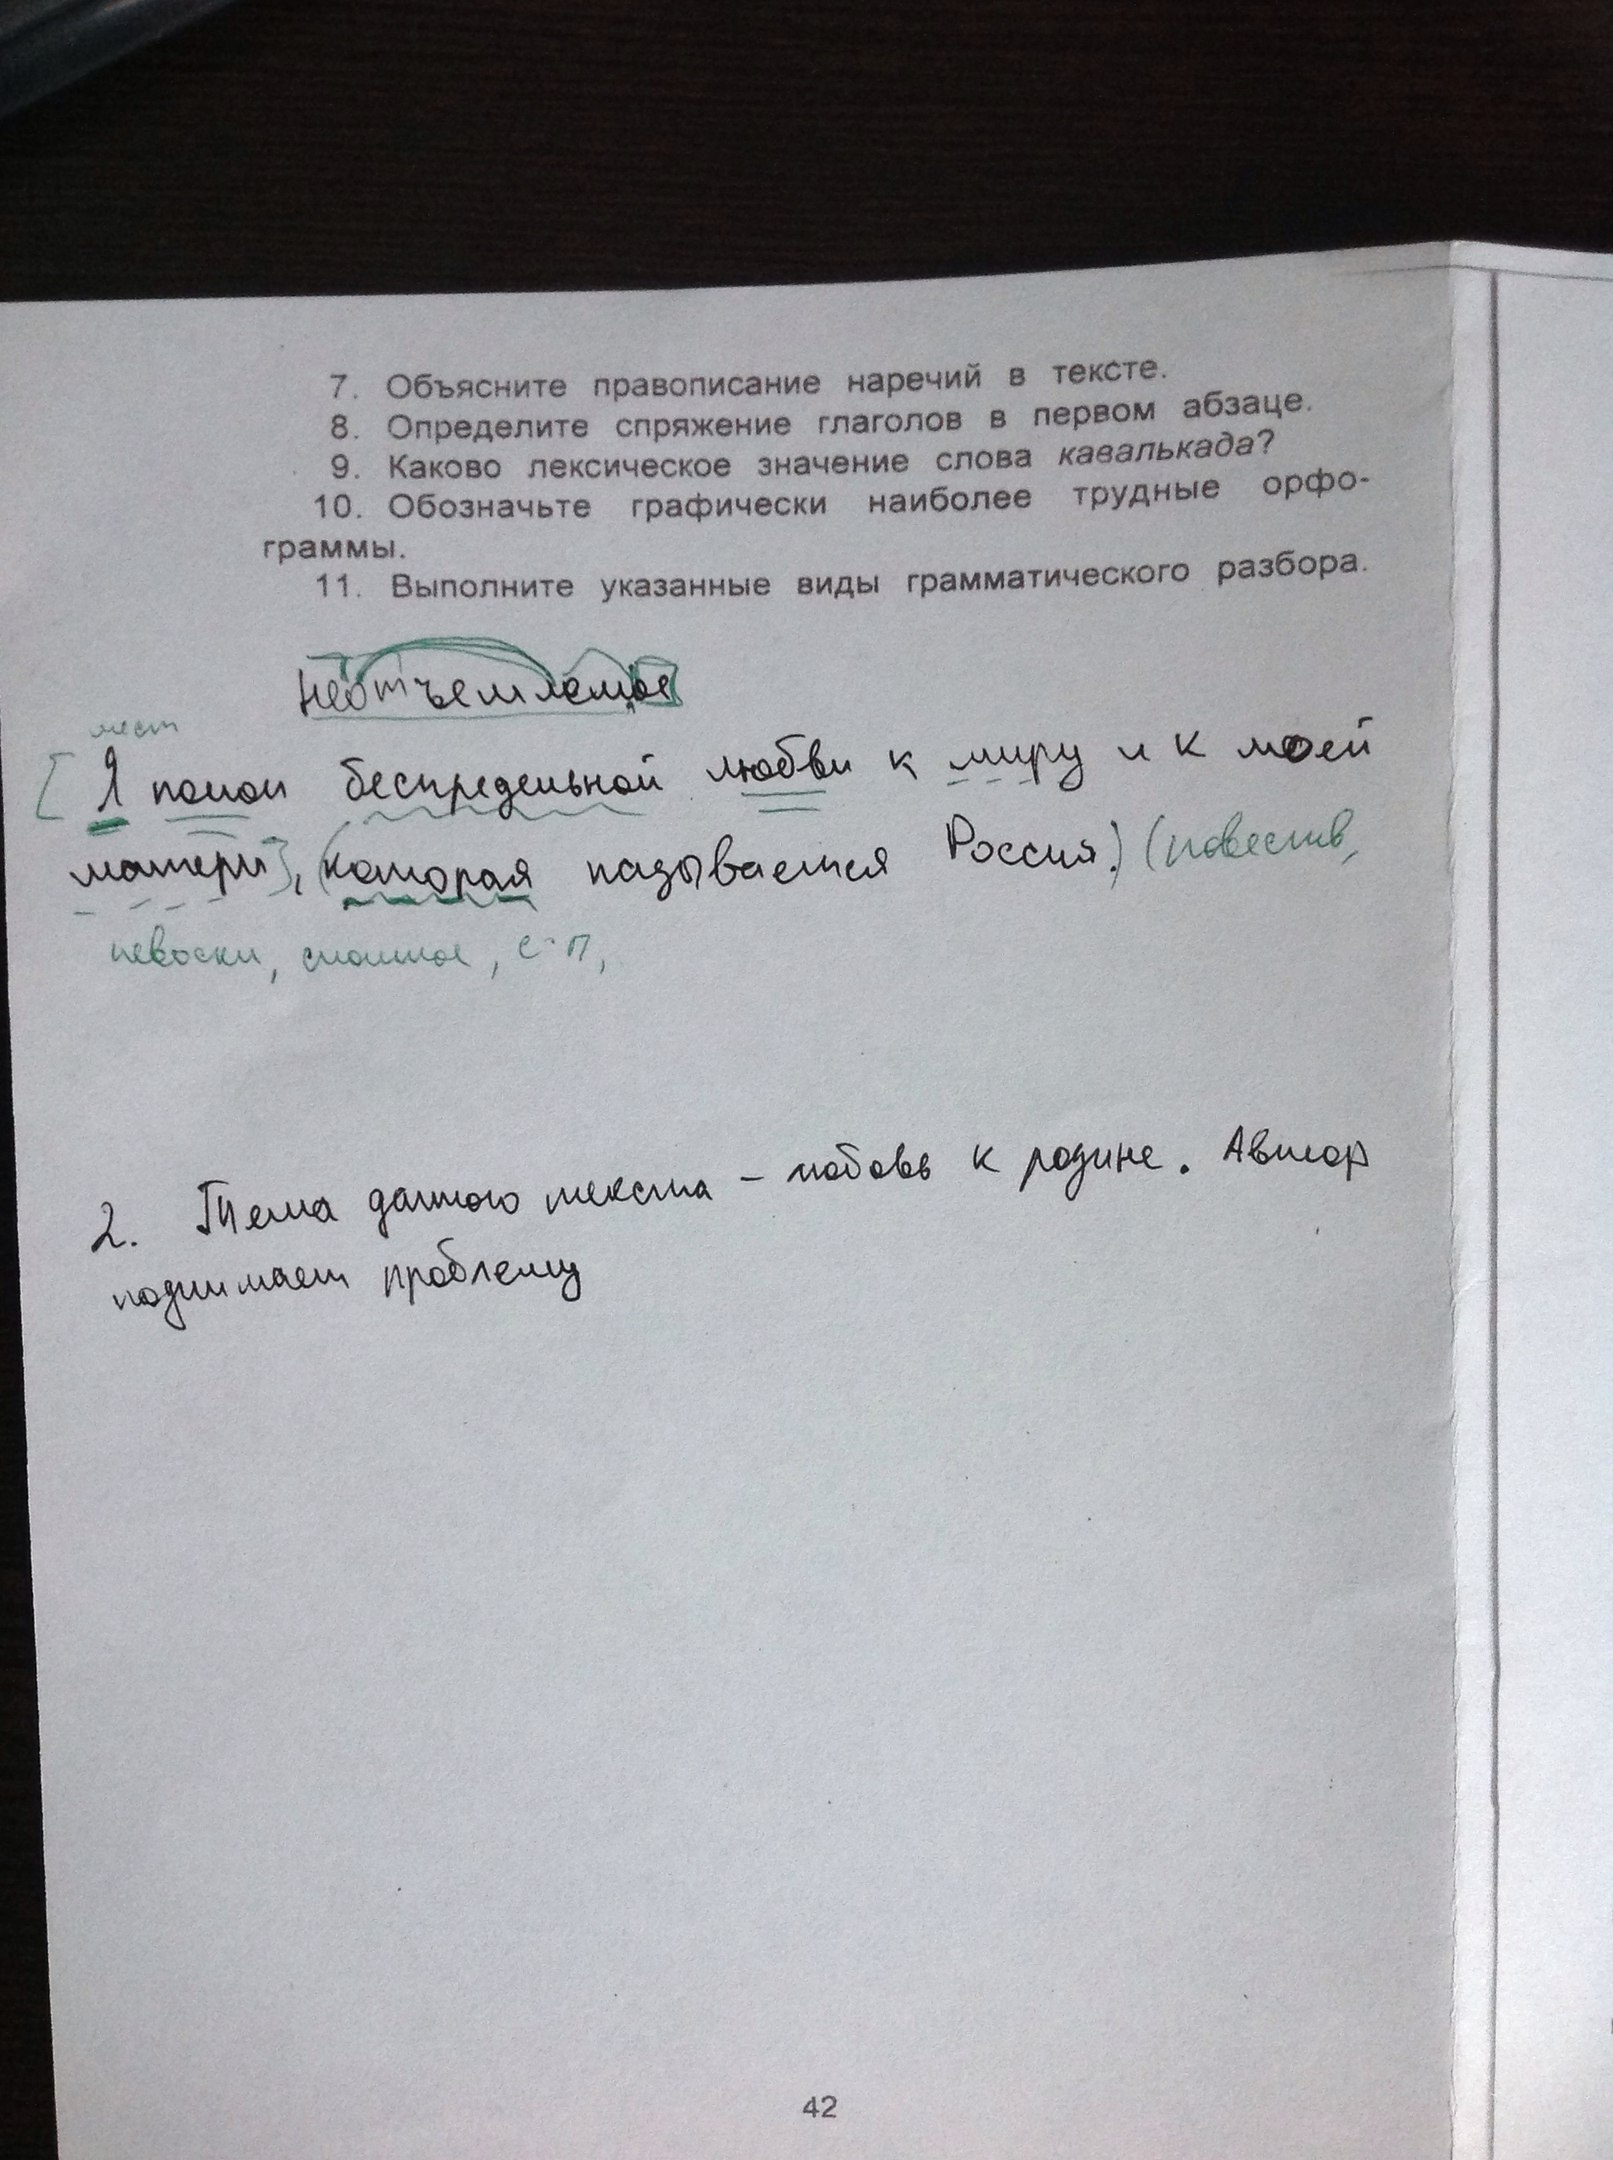 7. Объясните правописание наречий в тексте.
8. Определите спряжение глаголов в первом абзаце.
9. Каково лексическое значение слова кавалькада?
10. Обозначьте графически наиболее трудные орфо-
граммы.
11. Выполните указанные виды грамматического разбора.
Неотъемлемое
мест
[Я полон беспредельной любви к миру и к моей
матери], (которая называется Россия.) (повеств,
невоскл, сложное, с-п,
2. Тема данного текста – любовь к родине. Автор
поднимает проблему
42